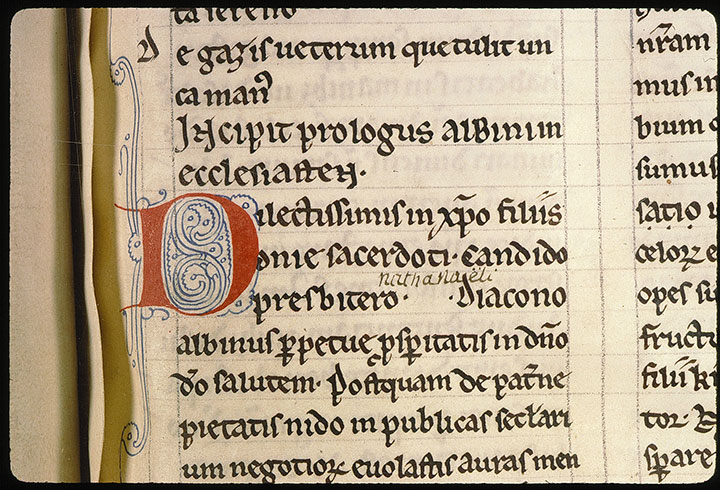 ca sereno
De gazis ueterum que tulit un
ca man⁹
Incipit prologus albini in
ecclesiasten.
Dilectissimis in xp̄o filiis
onie sacerdoti. Candido
nathanaeli
presbitero. Diacono
albinus ꝑpetue ꝓsꝑitatis in dn̄o
do salutem. Postquam de pat̄ne
pietatis nido in publicas seclari
um negotioꝝ euolastis auras men
nr̄am
mus in
bium
sumus
satio
celoꝝ e
opes su
fructu
filii ki
tor.
sꝑare